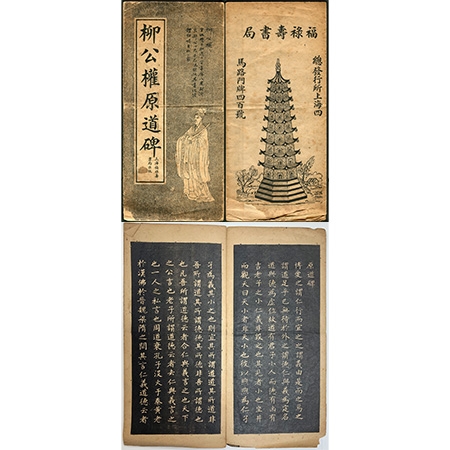 柳公權原道碑
福祿壽書局
總發行所上海四
馬路門牌四百號
原道碑
博愛之謂仁行而宜之之謂義由是而之焉之
謂道足乎己無待於外之謂德仁與義為定名
道與德為虛位故道有君子小人而德有凶有
吉老子之小仁義非毀之也其見者小也坐井
而觀天曰天小者非天小也彼以煦煦為仁孑
孑為義其小之也則宜其所謂道道其所道非
吾所謂道也其所謂德德其所德非吾所謂德
也凡吾所謂道德云者合仁與義言之也天下
之公言也老子所謂道德云者去仁與義言之
也一人之私言也周道衰孔子沒火于秦黃老
於漢佛於晉魏梁隋之間其言仁義道德云者